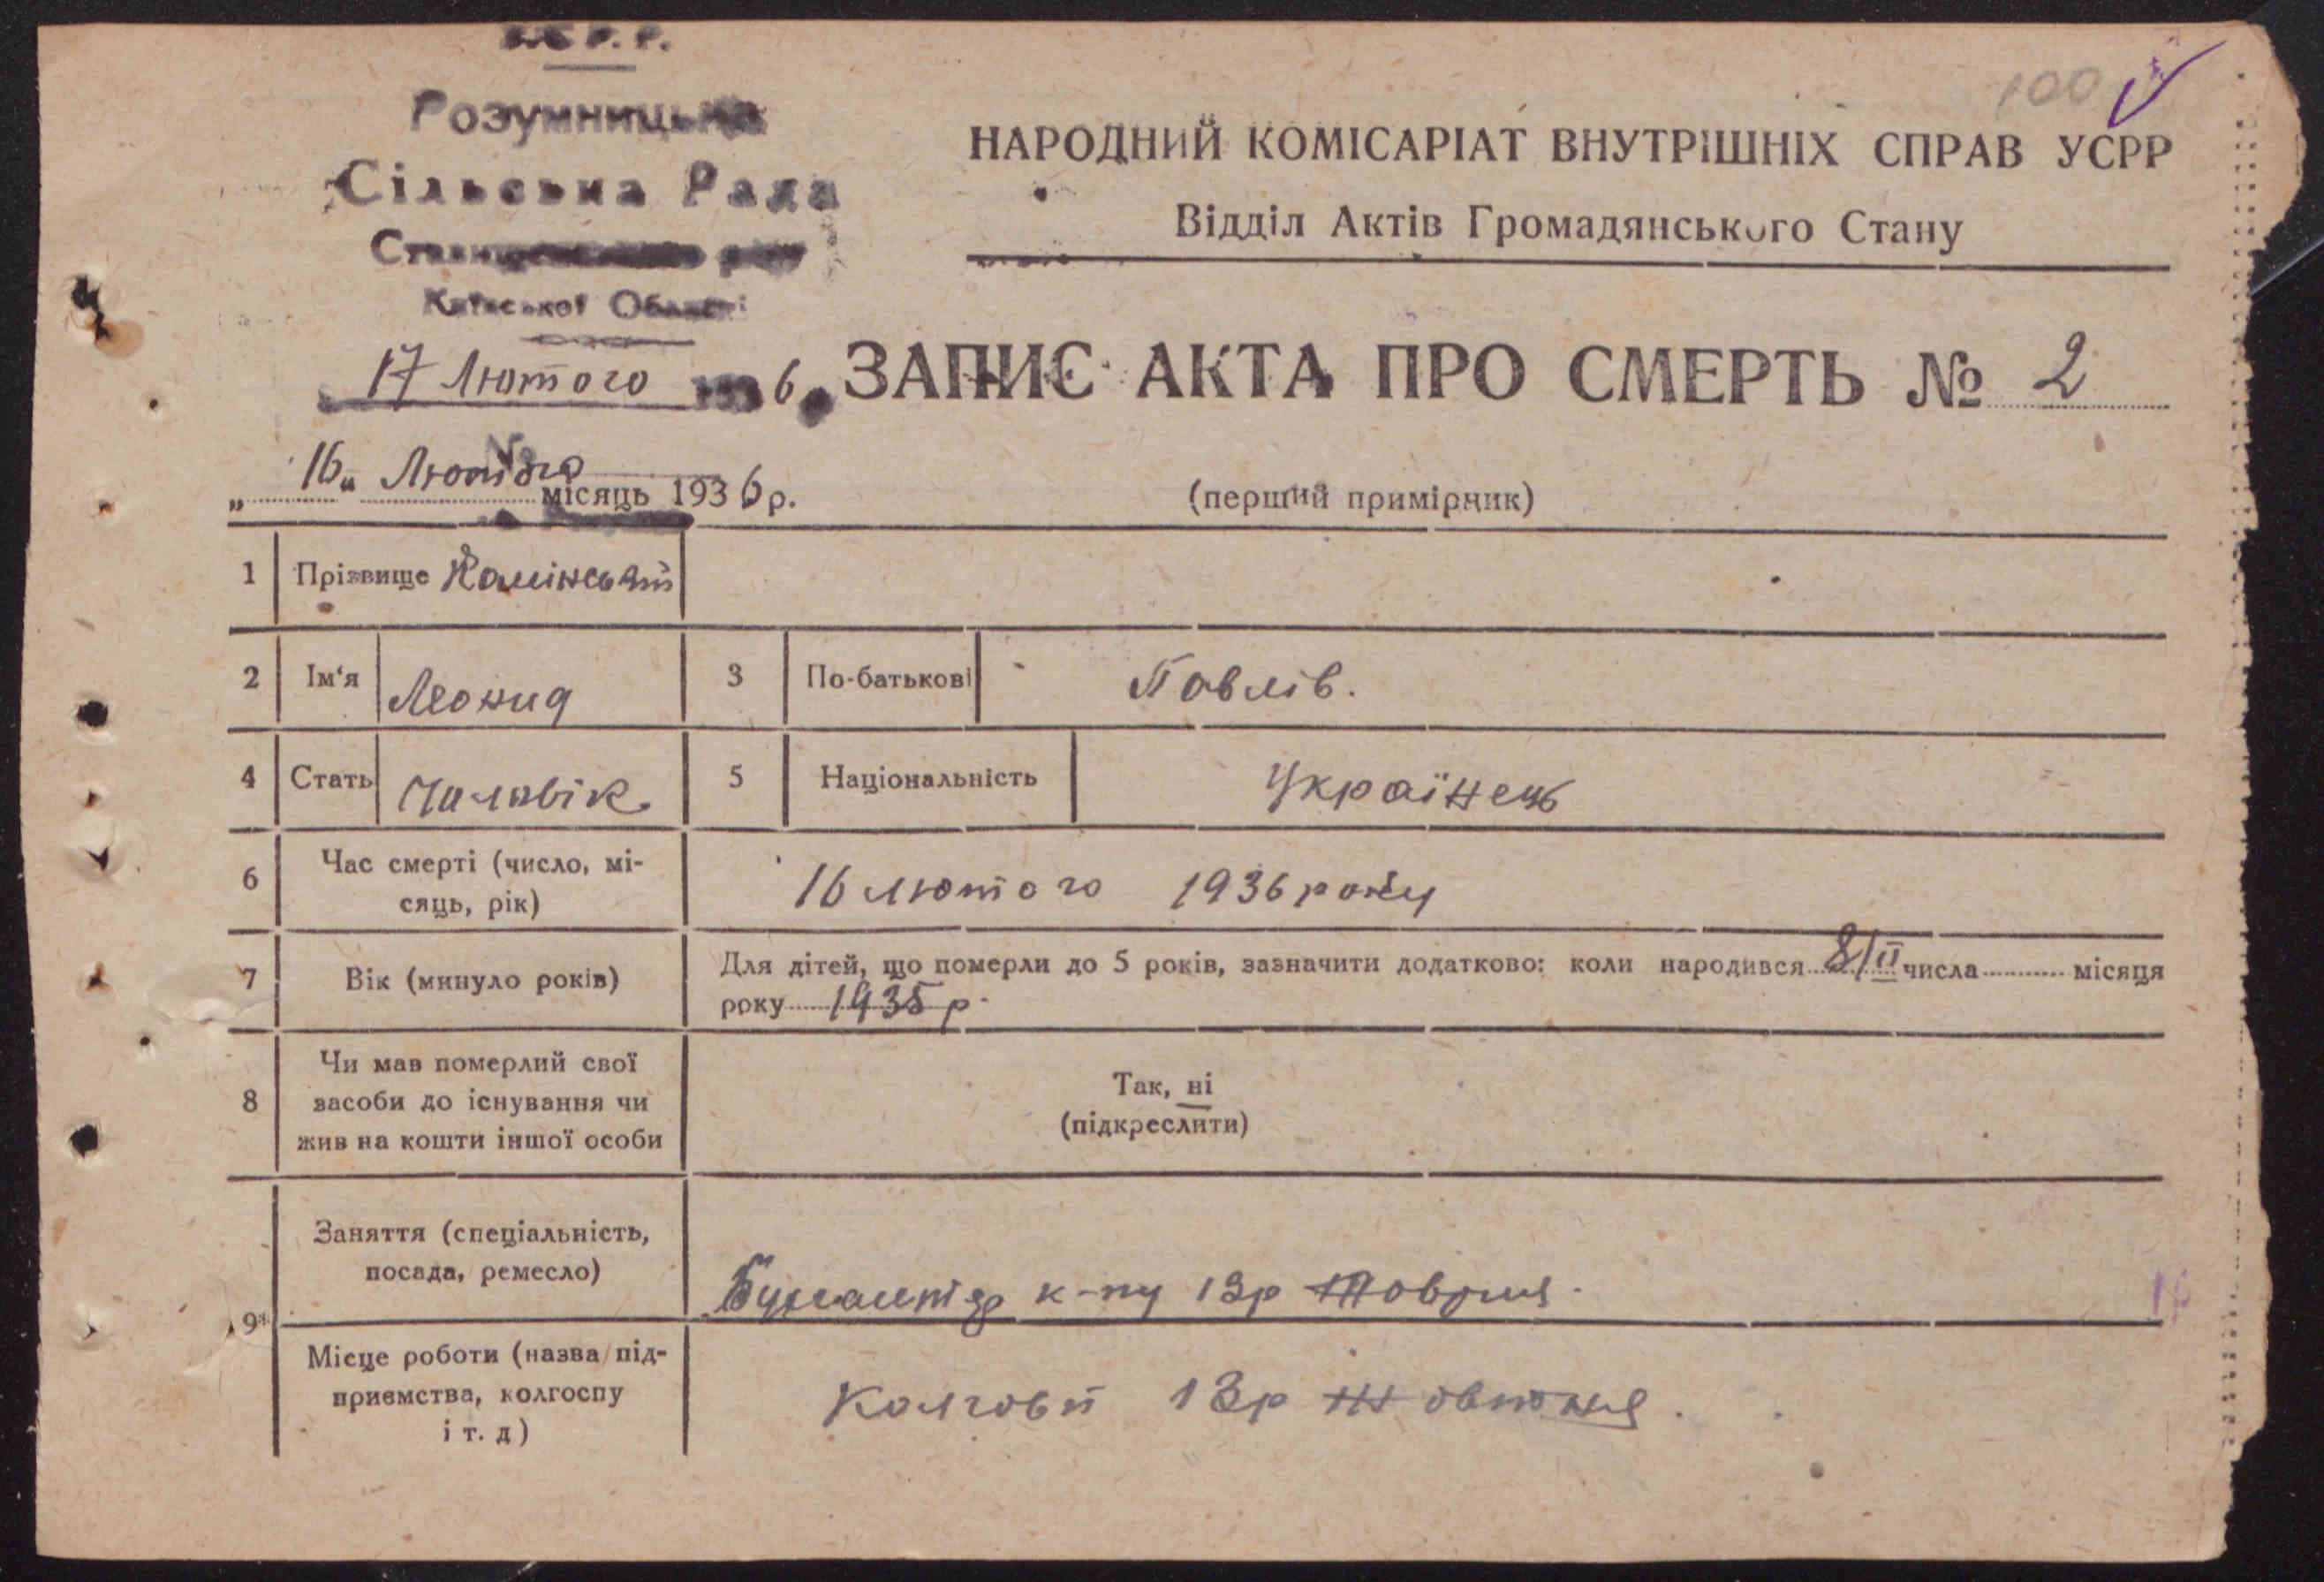 У.С.Р.Р.
Розумницька
Сільська Рада
Київської Області
17 Лютого 1936
100
НАРОДНИЙ КОМІСАРІАТ ВНУТРІШНІХ СПРАВ УСРР
Відділ Актів Громадянського Стану
ЗАПИС АКТА ПРО СМЕРТЬ № 2
„16" Лютого місяць 1936 р.
(перший примірник)
1 Прізвище Камінський
2 Ім'я Леонид 3 По-батькові Павлів.
4 Стать Чоловік. 5 Національність Українець
6 Час смерті (число, мі-
сяць, рік) 16 лютого 1936 року
7 Вік (минуло років) Для дітей, що померли до 5 років, зазначити додатково: коли народився 8/II числа місяця
року 1935 р.
8 Чи мав померлий свої
засоби до існування чи
жив на кошти іншої особи
Так, ні
(підкреслити)
9* Заняття (спеціальність,
посада, ремесло)
к-пу 13р
Місце роботи (назва під-
приємства, колгоспу
і т. д)
Колгосп 13р Жовтня.